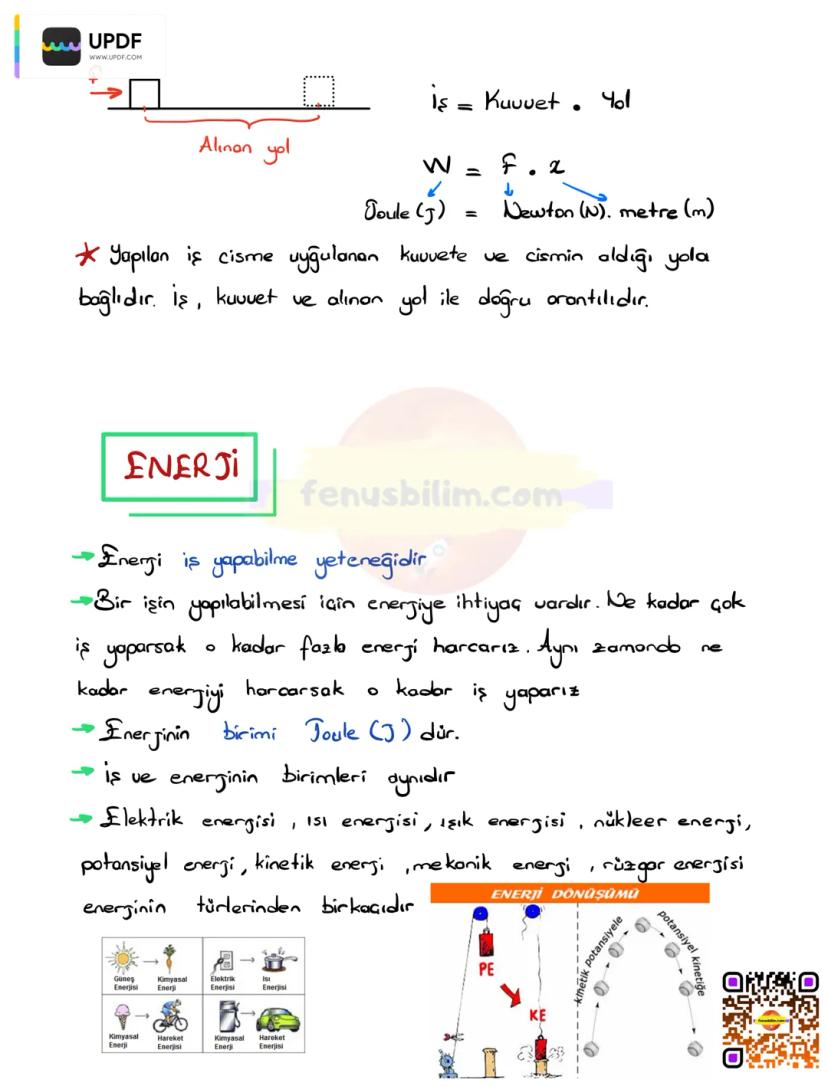 UPDF
WWW.UPDF.COM
F
İş = Kuvvet . Yol
Alınan yol
W = F . x
Joule (J) = Newton (N). metre (m)
* Yapılan iş cisme uyğulanan kuvvete ve cismin aldığı yola
bağlıdır. İş, kuvvet ve alınan yol ile doğru orantılıdır.
ENERJİ
fenusbilim.com
→ Enerji iş yapabilme yeteneğidir
→ Bir işin yapılabilmesi için enerjiye ihtiyaç vardır. Ne kadar çok
iş yaparsak o kadar fazla enerji harcarız. Aynı zamanda ne
kadar enerjiyi harcarsak o kadar iş yaparız
→ Enerjinin birimi Joule (J) dür.
→ İş ve enerjinin birimleri aynıdır
→ Elektrik enerjisi, ısı enerjisi, ışık enerjisi, nükleer enerji,
potansiyel enerji, kinetik enerji, mekanik enerji, rüzgar enerjisi
enerjinin türlerinden birkaçıdır
ENERJİ DÖNÜŞÜMÜ
Güneş Enerjisi
Kimyasal Enerji
Elektrik Enerjisi
Isı Enerjisi
Kimyasal Enerji
Hareket Enerjisi
Kimyasal Enerji
Hareket Enerjisi
PE
KE
kinetik potansiyele
potansiyel kinetiğe
fenusbilim.com